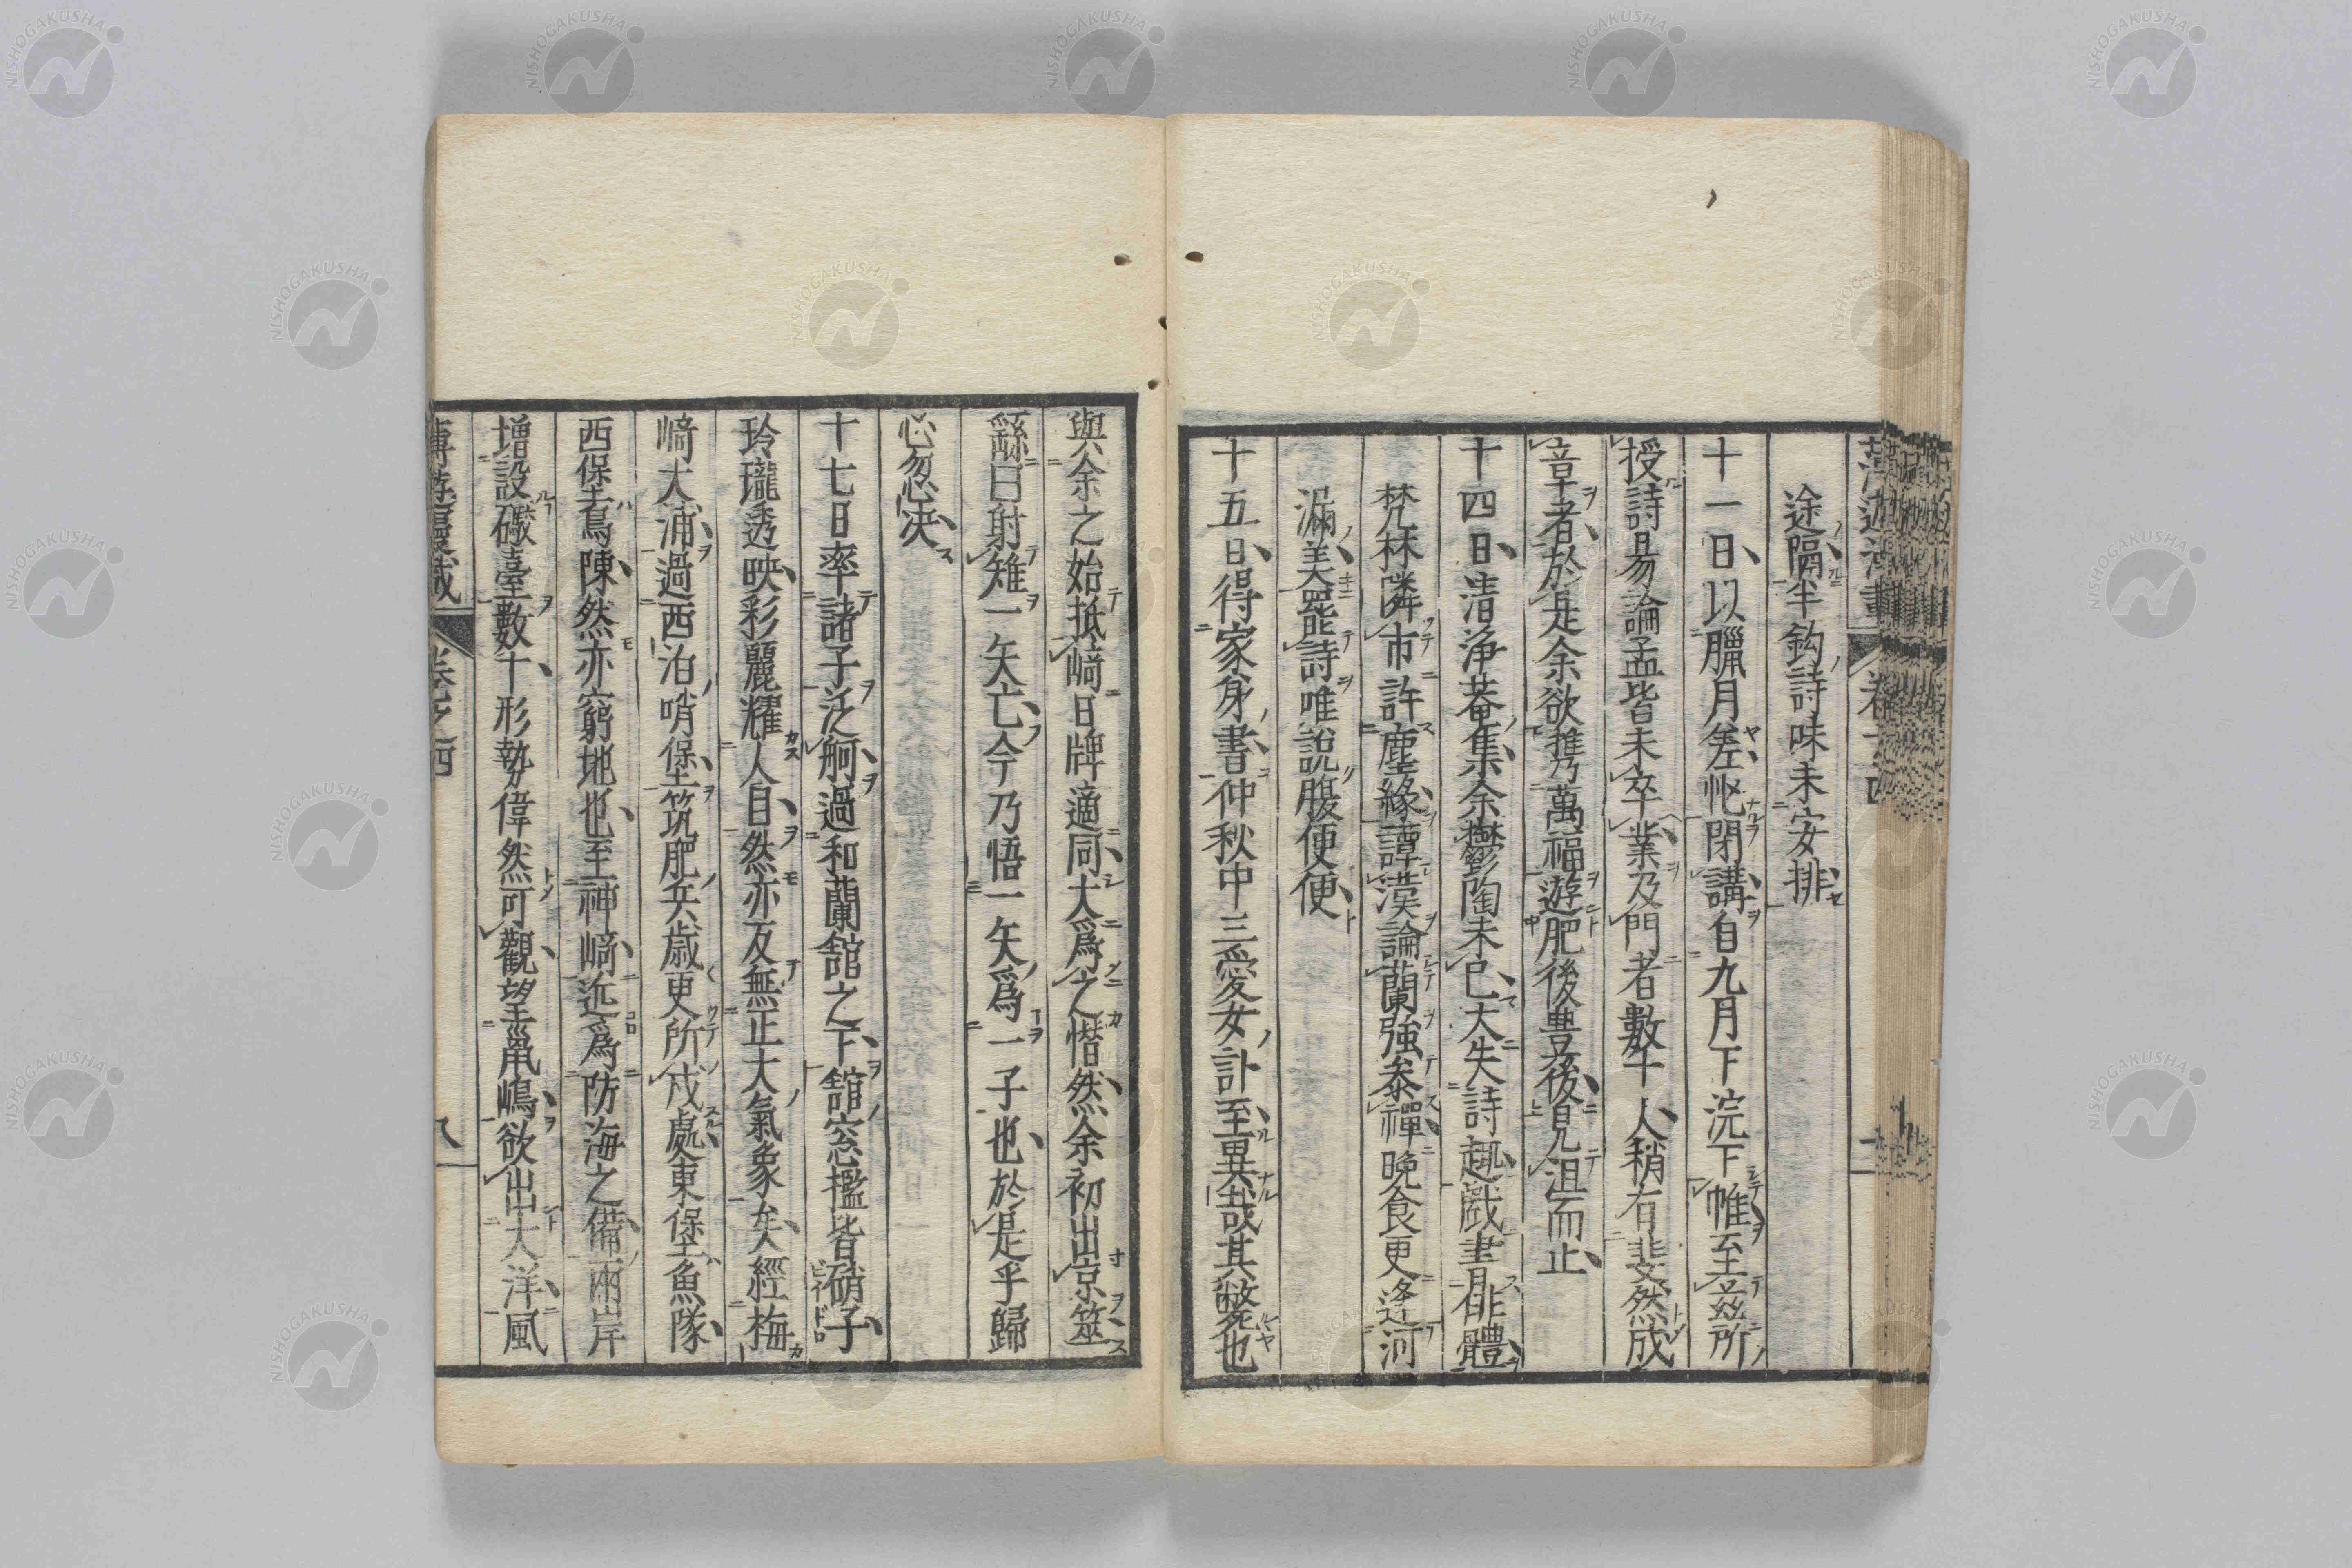 途隔半鈎詩味未安排
十一日以臘月差忙閉講自九月下浣下帷至茲所
授詩易論孟皆未卒業及門者數十人稍有斐然成
章者於是余欲携萬福遊肥後豊後見沮而止
十四日清浄菴集余欝陶未已大失詩趣戯書俳體
梵林隣市許塵緣譚漢論蘭強叅禪晩食更逢河
漏美罷詩唯說腹便便
十五日得家身書仲秋中三愛女訃至異哉其斃也
與余之始抵﨑日牌適同大爲之慘然余初出京筮
繇曰射雉一矢亡今乃悟一矢爲一子也於是乎歸
心忽决
十七日率諸子泛舸過和蘭舘之下舘窓檻皆硝子
玲瓏透映彩麗耀人目然亦及無正大氣象矣經梅
﨑大浦過西泊哨堡筑肥兵歲更所戍處東堡魚隊
西堡鳥陳然亦窮地也至神﨑近爲防海之備兩岸
增設礮臺數十形勢偉然可觀望鼠嶋欲出大洋風
薄遊漫載 卷之四 八
NISHOGAKUSHA